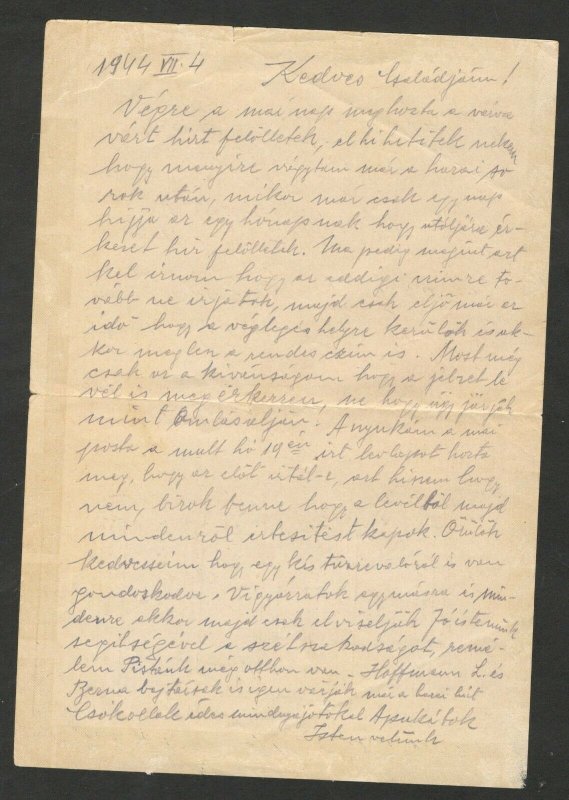 1944 VII. 4 Kedves Családjáim!
Végre a mai nap meghozta a várva
várt hírt felőlletek, elhihetitek nekem
hogy mennyire vágytam már a hazai so
rok után, mikor már csak egy nap
híjja az egy hónapnak hogy utóljára ér-
kezet hír felőlletek. Ma pedig megint azt
kel írnom hogy az eddigi címre to-
vább ne írjatok, majd csak eljő már az
idő hogy a végleges helyre kerülök és ak-
kor meglen a rendes cím is. Most még
csak az a kívánságom hogy a jelzet le
vél is megérkezzen, ne hogy úgy járjak
mint. Anyukám a mai
posta a mult hó 19 én írt levlapot hozta
meg, hogy az előt írtál-e, azt hiszem hogy
nem, bízok benne hogy a levélből majd
mindenről értesítést kapok. Örülök
kedveseim hogy egy kis tüzrevalóról is van
gondoskodva. Vigyázzatok egymásra és min-
denre akkor majd csak elviseljük Jóistenünk
segítségével a szétszakadságot, remé-
lem Pisták még otthon van - Hoffmann L. és
bajtársak is igen várják már a hazai hírt
Csókollak édes mindnyájotokat Apukátok
Isten velünk